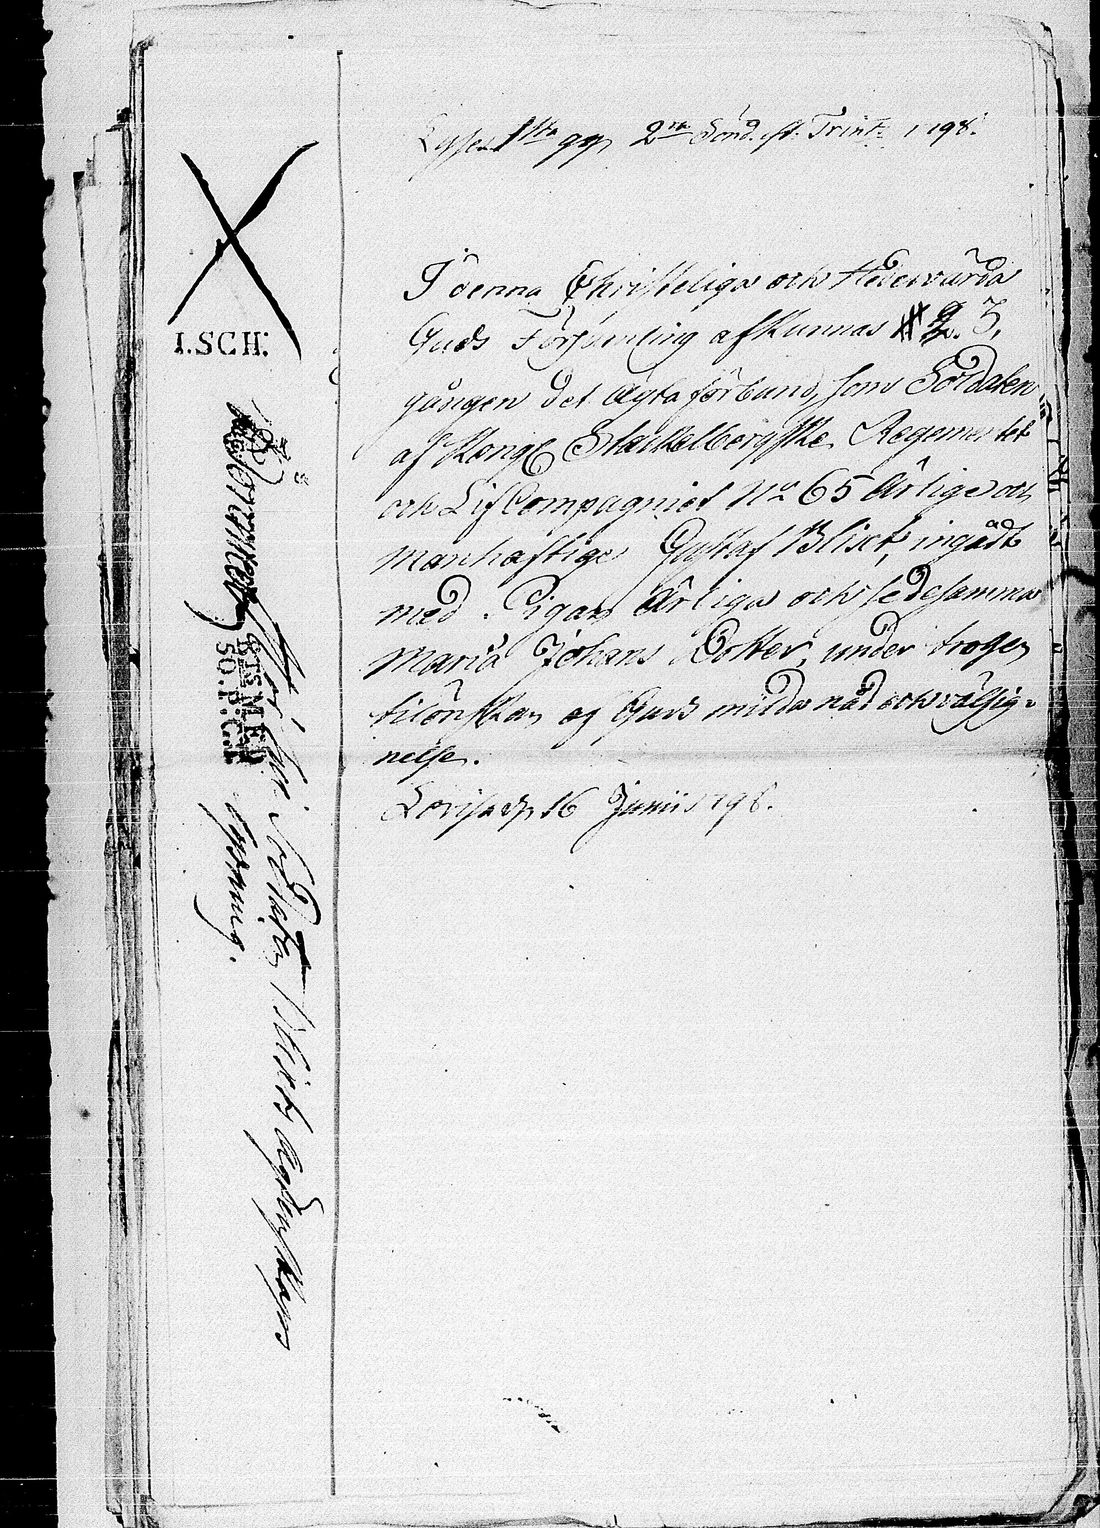 Lyses 1sta gg 2ra Sönd. p. Trinit. 1798.
I denna Christeliga och Hedervärda
Guds Församling afkunnas # 2. 3.
gången det Ägta förbund, som Soldaten
af Kongl Stackelbergska Regementet
och Lif Compagniet No 65 Ärlige och
manhaftige Gustaf Blixt, ingådt
med Pigan Ärliga och sedesamma
Maria Johans Dotter, under trogen
tilönskan af Guds milda nåd och välsig-
nelse.
Lovisa d 16 Junii 1798.
I.SCH:
BTSMED
50.P:C:t
för Soldaten Blixts Ägtenskaps
lysning.